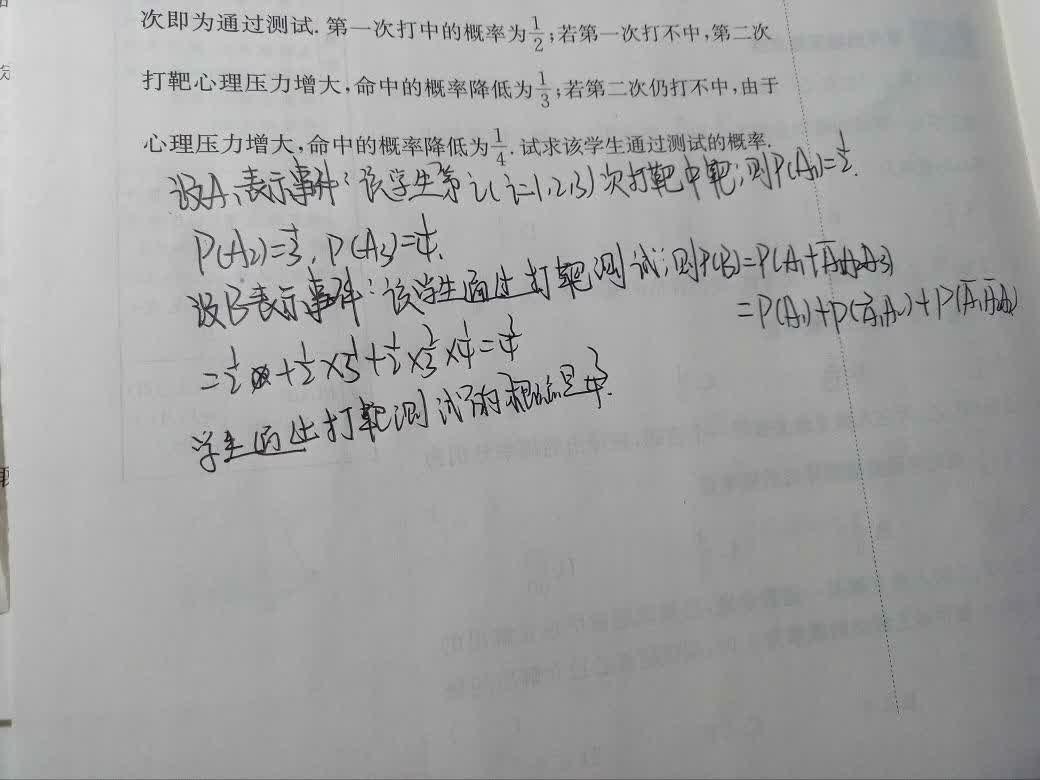 次即为通过测试.第一次打中的概率为1/2;若第一次打不中,第二次
打靶心理压力增大,命中的概率降低为1/3;若第二次仍打不中,由于
心理压力增大,命中的概率降低为1/4.试求该学生通过测试的概率.
设Ai表示事件:该学生第i(i=1,2,3)次打靶中靶;则P(A1)=1/2.
P(A2)=1/3,P(A3)=1/4.
设B表示事件:该学生通过打靶测试;则P(B)=P(A1+A̅1A2+A̅1A̅2A3)
=P(A1)+P(A̅1A2)+P(A̅1A̅2A3)
=1/2+1/2×1/3+1/2×2/3×1/4=3/4
学生通过打靶测试的概率是3/4.